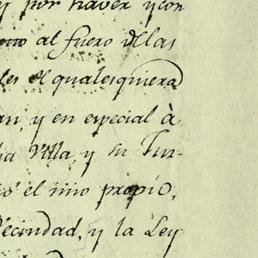 y por haver y con
al fuero dela
les ô qualesquiera
an, y en especial à
ha Villa, y su Jur-
el mio propio,
Vecindad, y la Ley